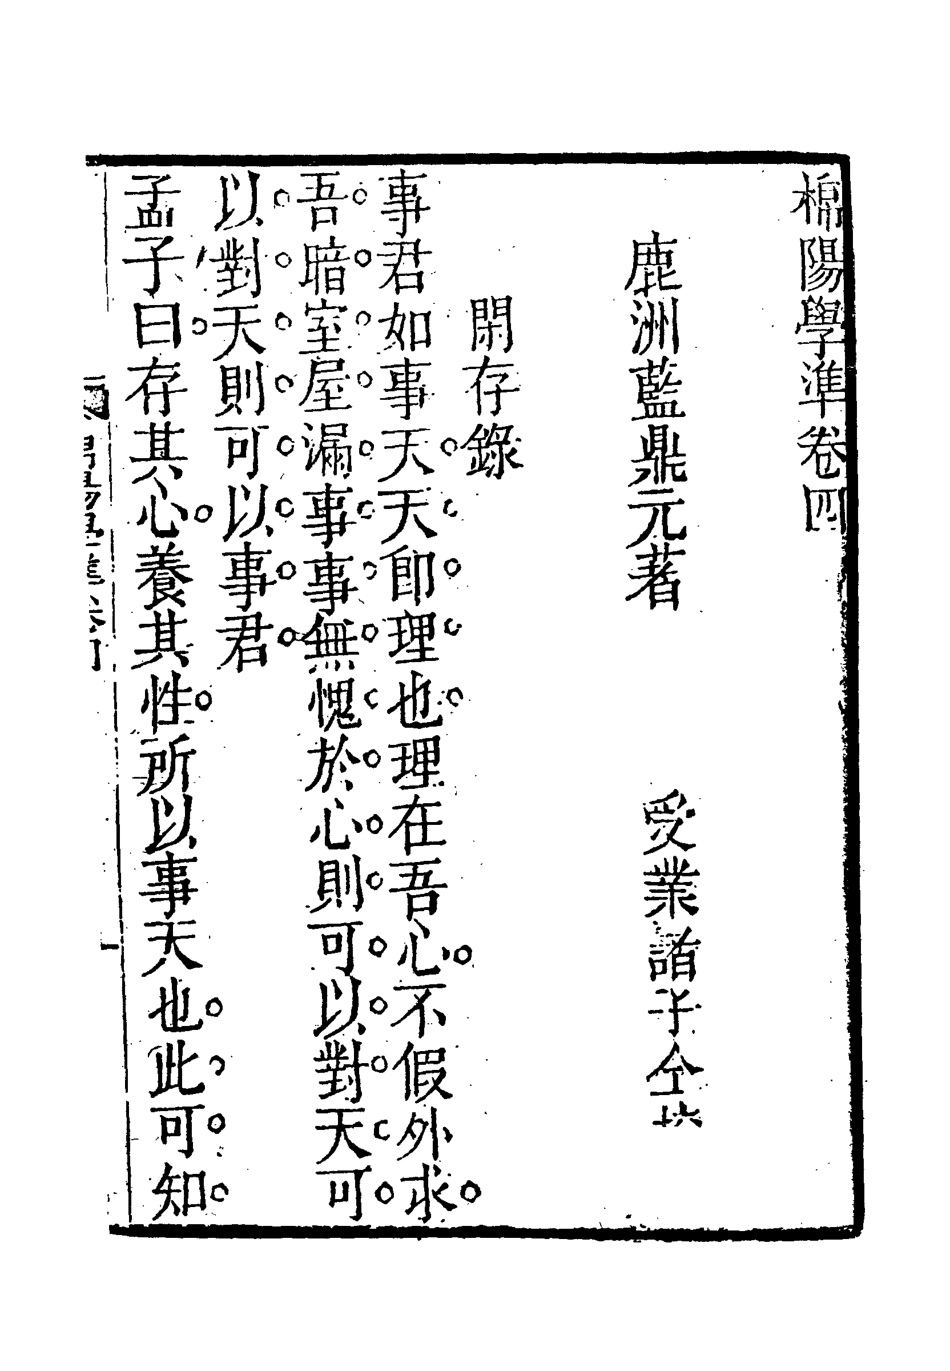 棉陽學準卷四
鹿洲藍鼎元著　受業諸子仝
閑存錄
事君如事天天卽理也理在吾心不假外求
吾暗室屋漏事事無愧於心則可以對天可
以對天則可以事君
孟子曰存其心養其性所以事天也此可知